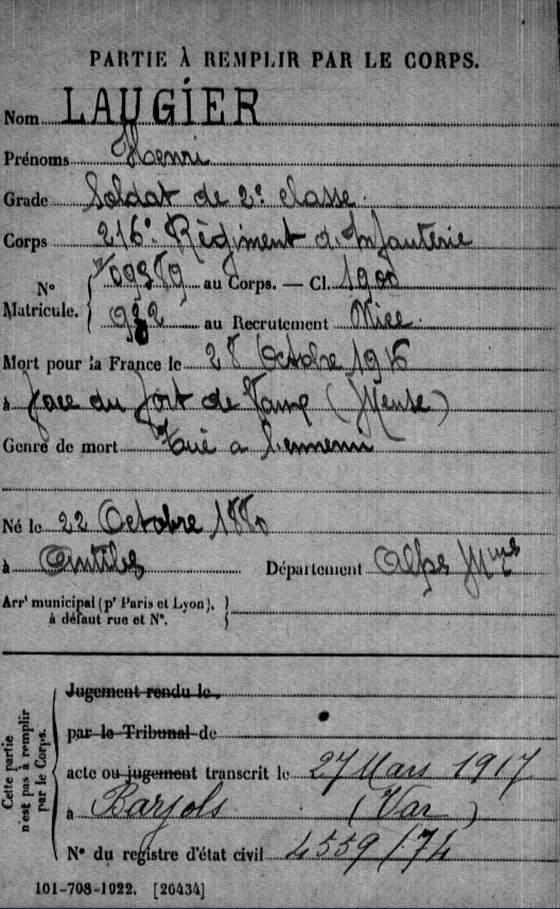 PARTIE À REMPLIR PAR LE CORPS.
Nom LAUGIER
Prénoms Henri
Grade Soldat de 2e classe
Corps 216e Régiment d'Infanterie
N° Matricule. { 09989 au Corps. — Cl. 1900
982 au Recrutement Nice
Mort pour la France le 28 Octobre 1916
à face du fort de Vaux (Meuse)
Genre de mort Tué à l'ennemi
Né le 22 Octobre 1880
à Antibes Département Alpes Mmes
Arrt municipal (pr Paris et Lyon), }
à défaut rue et N°.
Cette partie n'est pas à remplir par le Corps.
Jugement rendu le
par le Tribunal de
acte ou jugement transcrit le 27 Mars 1917
à Barjols (Var)
N° du registre d'état civil 4559/74
101-708-1922. [26434]